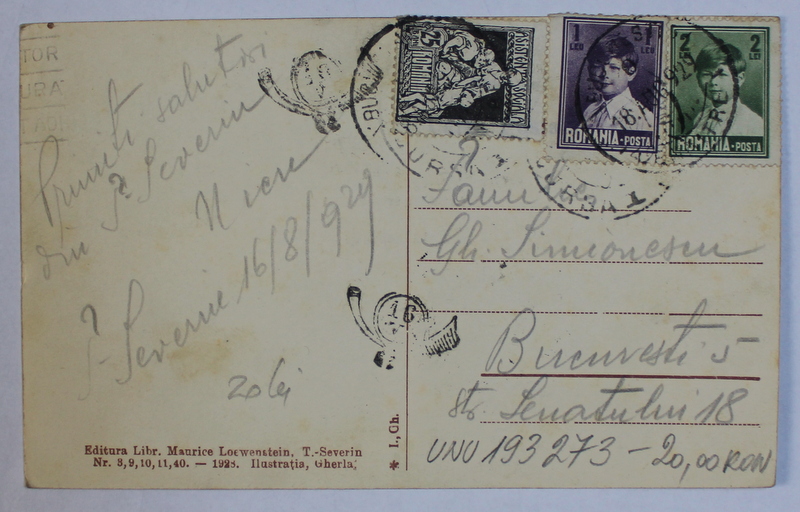 TOR
URA
Primiti salutări
din T. Severin
T-Severin 16/8/929
20 lei
Editura Libr. Maurice Loewenstein, T.-Severin
Nr. 3,9,10,11,40. — 1928. Ilustrația, Gherla,
* I., Gh.
25
ROMANIA
ASISTENTA SOCIALA
1 LEU
1 LEU
ROMANIA-POSTA
2 LEI
2 LEI
ROMANIA-POSTA
16
16
Gh. Simionescu
Bucuresti 5
str. Senatului 18
UNU 193 273 - 20,00 RON